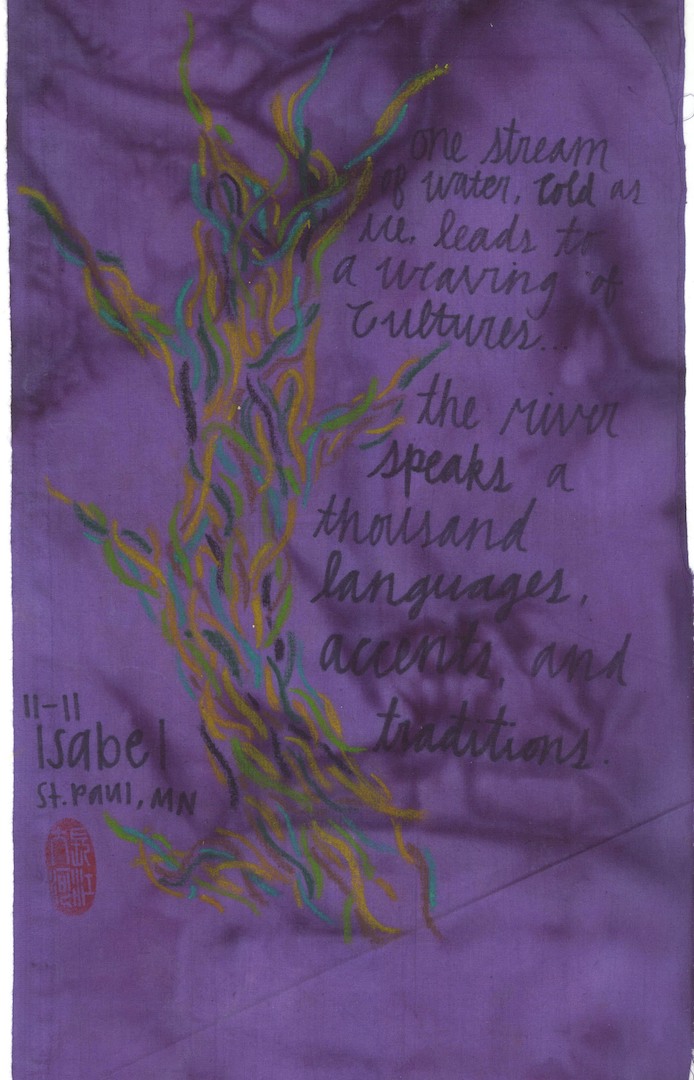 one stream
of water, cold as
ice, leads to
a weaving of
cultures...
the river
speaks a
thousand
languages,
accents, and
traditions.
11-11
Isabel
St. Paul, MN